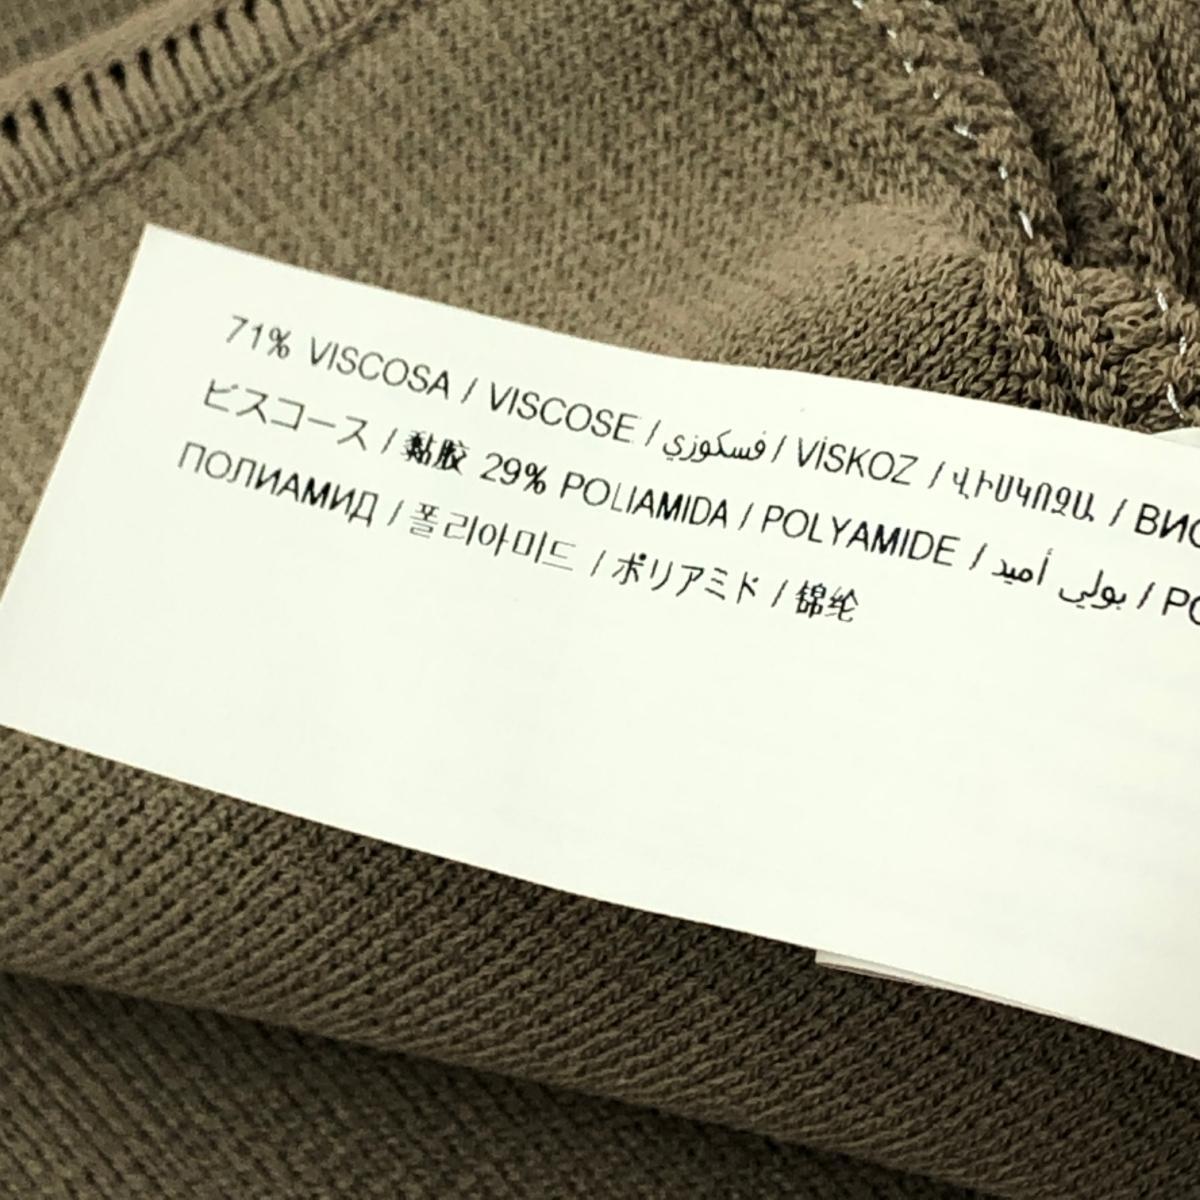 71% VISCOSA / VISCOSE / فسكوزي / VİSKOZ / ՎԻՍԿՈԶԱ /
ビスコース / 黏胶 29% POLIAMIDA / POLYAMIDE / بولي أميد /
ПОЛИАМИД / 폴리아미드 / ポリアミド / 锦纶